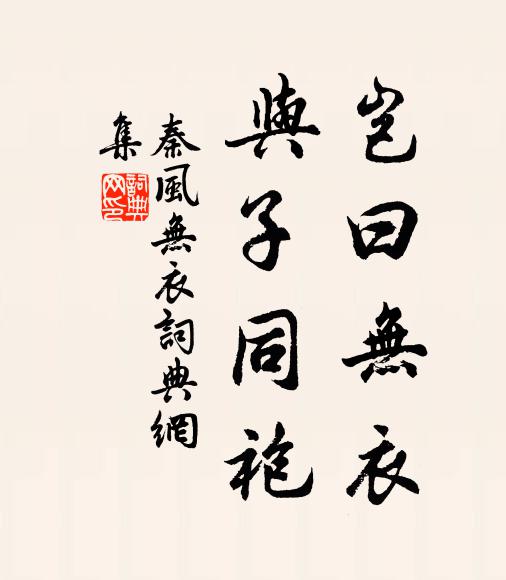 豈曰無衣
與子同袍
秦風無衣詞典網
集
詞典網印